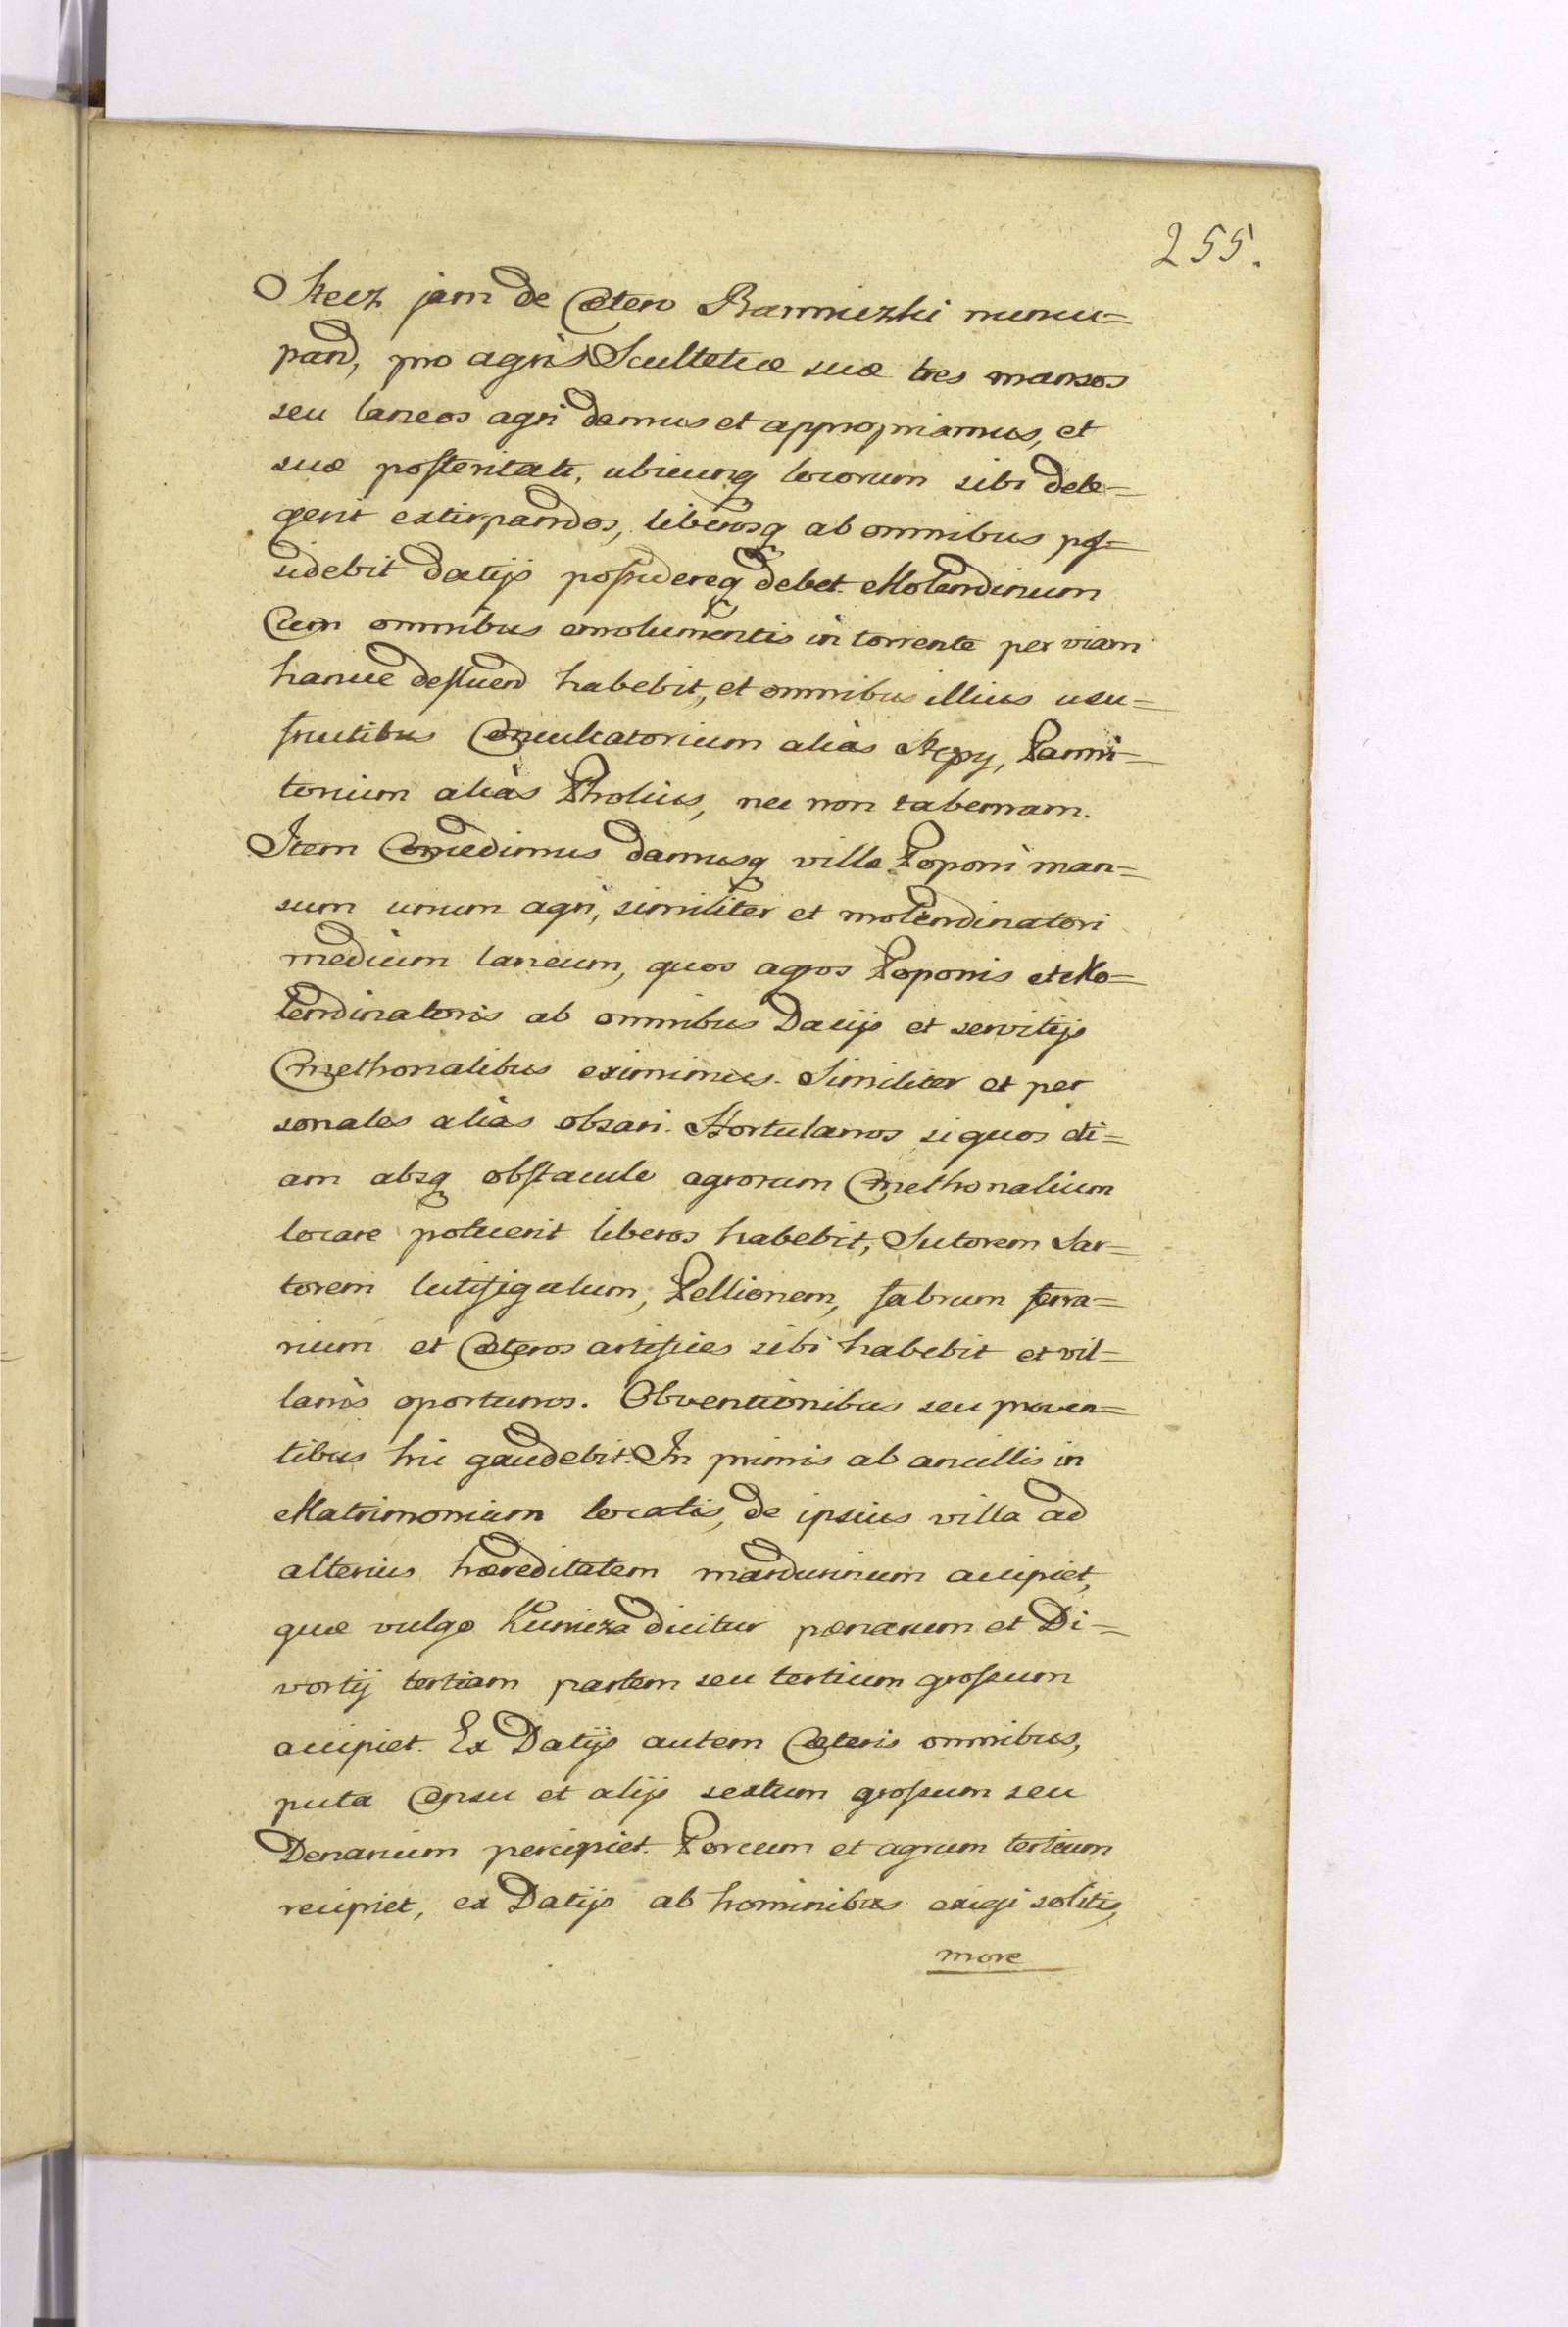 255.
jam de Cætero Banniczki nuncu=
pand, pro agris Scultetiæ suæ tres mansos
seu laneos agri damus et appropriamus, et
suæ posteritati, ubicunq locorum sibi dele=
gerit extirpandos, liberosq ab omnibus pos=
sidebit datijs possidereq debet. Molendinum
Cum omnibus emolumentis in torrente per viam
hanc defluend habebit, et omnibus illius usu=
fructibus Conculcatorium aliàs Stepy, Panni=
torium aliàs Pholius, nec non tabernam.
Item Concedimus damusq villæ Poponi man=
sum unum agri, similiter et molendinatori
medium laneum, quos agros Poponis et Mo=
lendinatoris ab omnibus Dacijs et servitijs
Cmethonalibus eximimus. Similiter et per
sonales aliàs obsari. Hortulanos si quos eti=
am absq obstaculo agrorum Cmethonalium
locare potuerit liberos habebit, Sutorem Sar=
torem lutifigulum, Pellionem, fabrum ferra=
rium et Cæteros artifices sibi habebit et vil=
lanis oportunos. Obventionibus seu proven=
tibus hic gaudebit. In primis ab ancillis in
Matrimonium locatis, de ipsius villa ad
alterius hæreditatem mardurinum accipiet,
quæ vulgo Kunicza dicitur pœnarum et Di=
vortij tertiam partem seu tertium grossum
accipiet. Ex Datijs autem Cæteris omnibus,
puta Censu et alijs sextum grossum seu
Denarium percipiet. Porcum et agnum tertium
recipiet, ex Datijs ab hominibus exigi solitis,
more